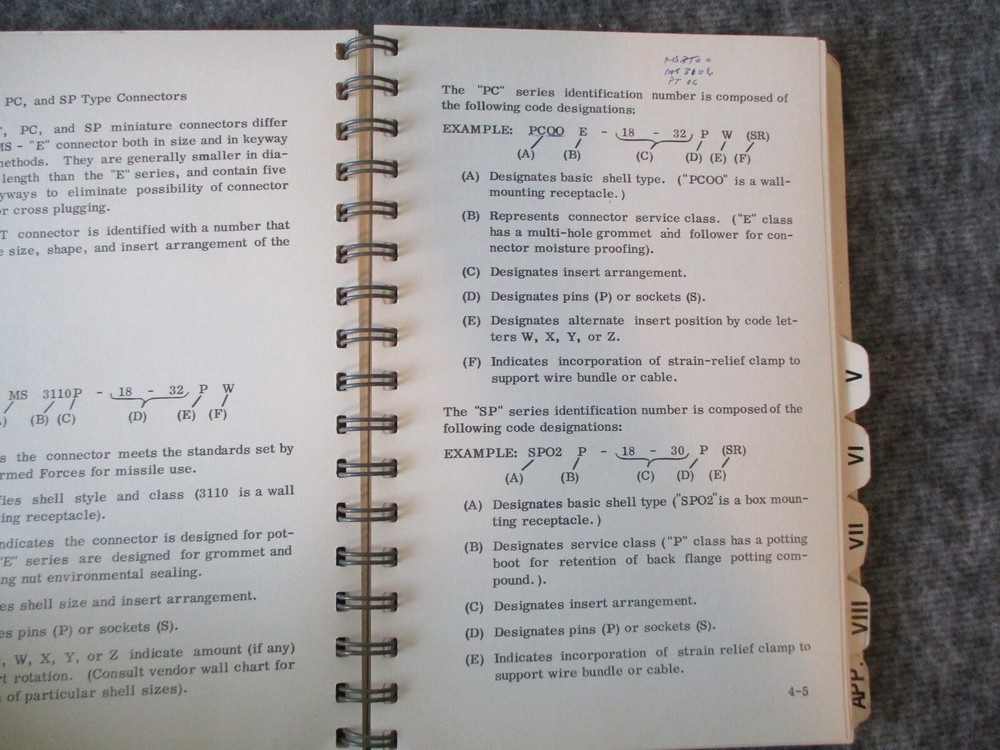 PC, and SP Type Connectors
, PC, and SP miniature connectors differ
MS - "E" connector both in size and in keyway
methods. They are generally smaller in dia-
length than the "E" series, and contain five
yways to eliminate possibility of connector
r cross plugging.
T connector is identified with a number that
e size, shape, and insert arrangement of the
MS 3110P - 18 - 32 P W
) (B) (C) (D) (E) (F)
s the connector meets the standards set by
rmed Forces for missile use.
fies shell style and class (3110 is a wall
ing receptacle).
ndicates the connector is designed for pot-
"E" series are designed for grommet and
ng nut environmental sealing.
es shell size and insert arrangement.
es pins (P) or sockets (S).
, W, X, Y, or Z indicate amount (if any)
rt rotation. (Consult vendor wall chart for
of particular shell sizes).
The "PC" series identification number is composed of
the following code designations:
EXAMPLE: PCOO E - 18 - 32 P W (SR)
(A) (B) (C) (D) (E) (F)
(A) Designates basic shell type. ("PCOO" is a wall-
mounting receptacle.)
(B) Represents connector service class. ("E" class
has a multi-hole grommet and follower for con-
nector moisture proofing).
(C) Designates insert arrangement.
(D) Designates pins (P) or sockets (S).
(E) Designates alternate insert position by code let-
ters W, X, Y, or Z.
(F) Indicates incorporation of strain-relief clamp to
support wire bundle or cable.
The "SP" series identification number is composed of the
following code designations:
EXAMPLE: SPO2 P - 18 - 30 P (SR)
(A) (B) (C) (D) (E)
(A) Designates basic shell type ("SPO2" is a box moun-
ting receptacle.)
(B) Designates service class ("P" class has a potting
boot for retention of back flange potting com-
pound.).
(C) Designates insert arrangement.
(D) Designates pins (P) or sockets (S).
(E) Indicates incorporation of strain relief clamp to
support wire bundle or cable.
4-5
V
VI
VII
VIII
APP.